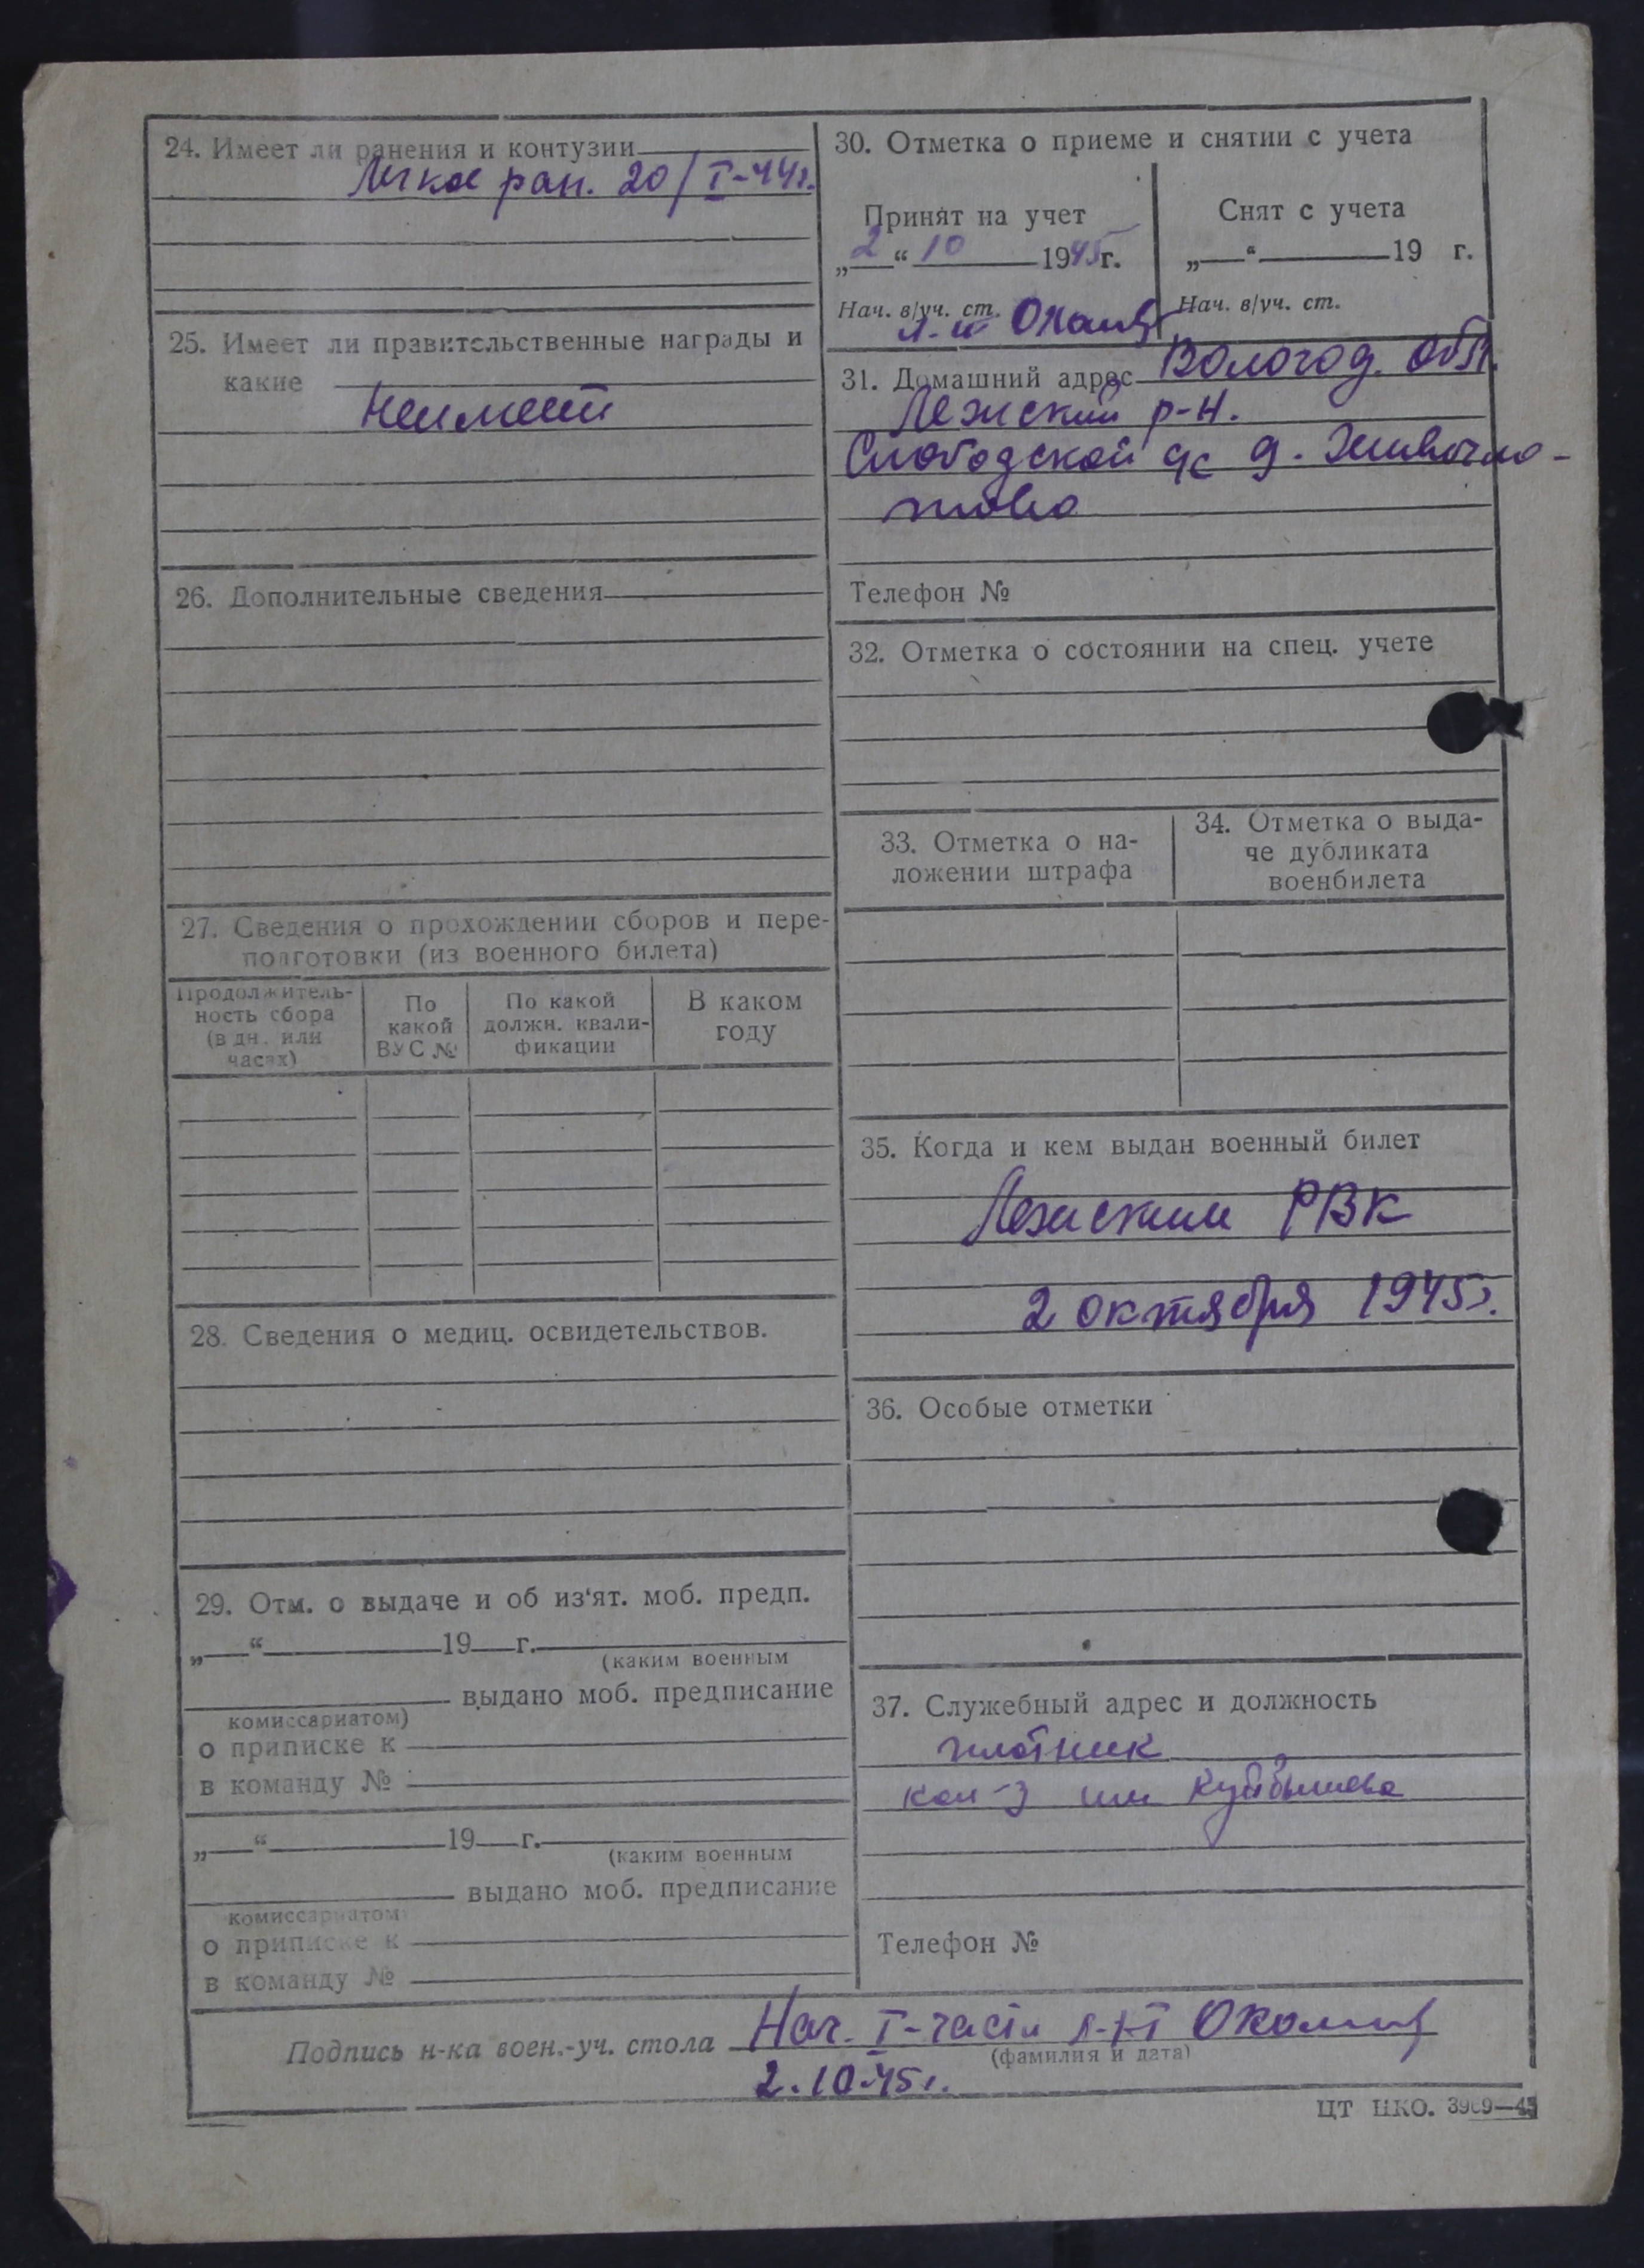 24. Имеет ли ранения и контузии
Легкое ран. 20/I-44г.
25. Имеет ли правительственные награды и
какие
Неимеет
26. Дополнительные сведения
27. Сведения о прохождении сборов и пере-
подготовки (из военного билета)
Продолжитель-
ность сбора
(в дн. или
часах)
По
какой
ВУС №
По какой
должн. квали-
фикации
В каком
году
28. Сведения о медиц. освидетельствов.
29. Отм. о выдаче и об из‘ят. моб. предп.
„ “ 19 г.
(каким военным
выдано моб. предписание
комиссариатом)
о приписке к
в команду №
„ “ 19 г.
(каким военным
выдано моб. предписание
комиссариатом)
о приписке к
в команду №
30. Отметка о приеме и снятии с учета
Принят на учет
„2“ 10 1945г.
Нач. в/уч. ст.
Снят с учета
„ “ 19 г.
Нач. в/уч. ст.
31. Домашний адрес Вологод. обл.
Лежский р-н.
Слободской с/с д.
Телефон №
32. Отметка о состоянии на спец. учете
33. Отметка о на-
ложении штрафа
34. Отметка о выда-
че дубликата
военбилета
35. Когда и кем выдан военный билет
Лежским РВК
2 октября 1945г.
36. Особые отметки
37. Служебный адрес и должность
плотник
кол-з им Куйбышева
Телефон №
Подпись н-ка воен.-уч. стола Нач. I-части л-нт
(фамилия и дата)
2.10.45г.
ЦТ НКО. 3969—45